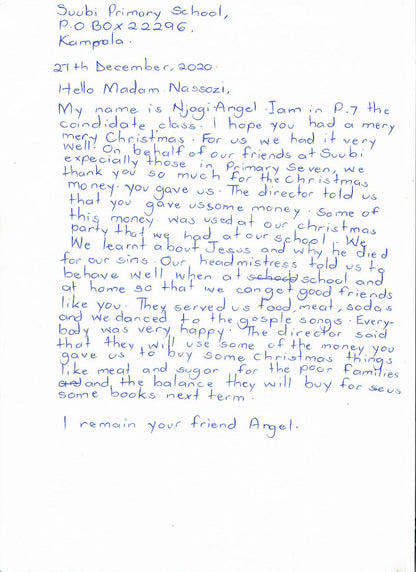 Suubi Primary School,
P.O BOX 22296,
Kampala.
27th December, 2020.
Hello Madam Nassozi,
My name is Njagi Angel. Iam in P.7 the
candidate class. I hope you had a mery
mery Christmas. For us we had it very
well. On behalf of our friends at Suubi
expecially those in Primary Seven, we
thank you so much for the Christmas
money. you gave us. The director told us
that you gave ussome money. Some of
this money was used at our christmas
party that we had at our school. We
We learnt about Jesus and why he died
for our sins. Our headmistress told us to
behave well when at school school and
at home so that we canget good friends
like you. They served us food, meat, sodas
and we danced to the gosple songs. Every-
body was very happy. The director said
that they will use some of the money you
gave us to buy some Christmas things
like meat and sugar for the poor families
and and, the balance they will buy for seus
some books next term.
I remain your friend Angel.